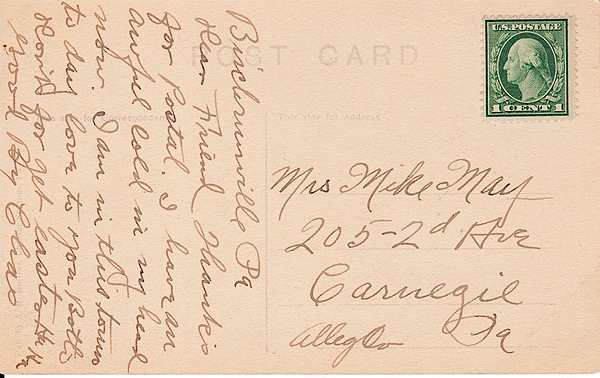 POST CARD
U.S. POSTAGE
1 CENT 1
This side for Correspondence
This side for Address
Richmville Pa
Dear Friend Thanks
for Postal. I have an
awful cold in my head
now. I am in this town
to day love to you Both
Don't for get Easter Ha Ha
Good By Chas
Mrs Mike May
205-2d Ave
Carnegie
Alleg Co Pa